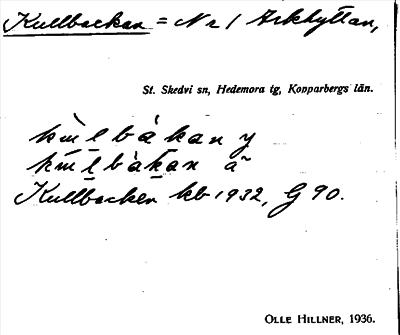 Kullbackan = Nr 1 Arkhyttan,
St. Skedvi sn, Hedemora tg, Kopparbergs län.
kùlbàkan y
kùlbàkan a~
Kullbacken kb 1932, G 90.
OLLE HILLNER, 1936.